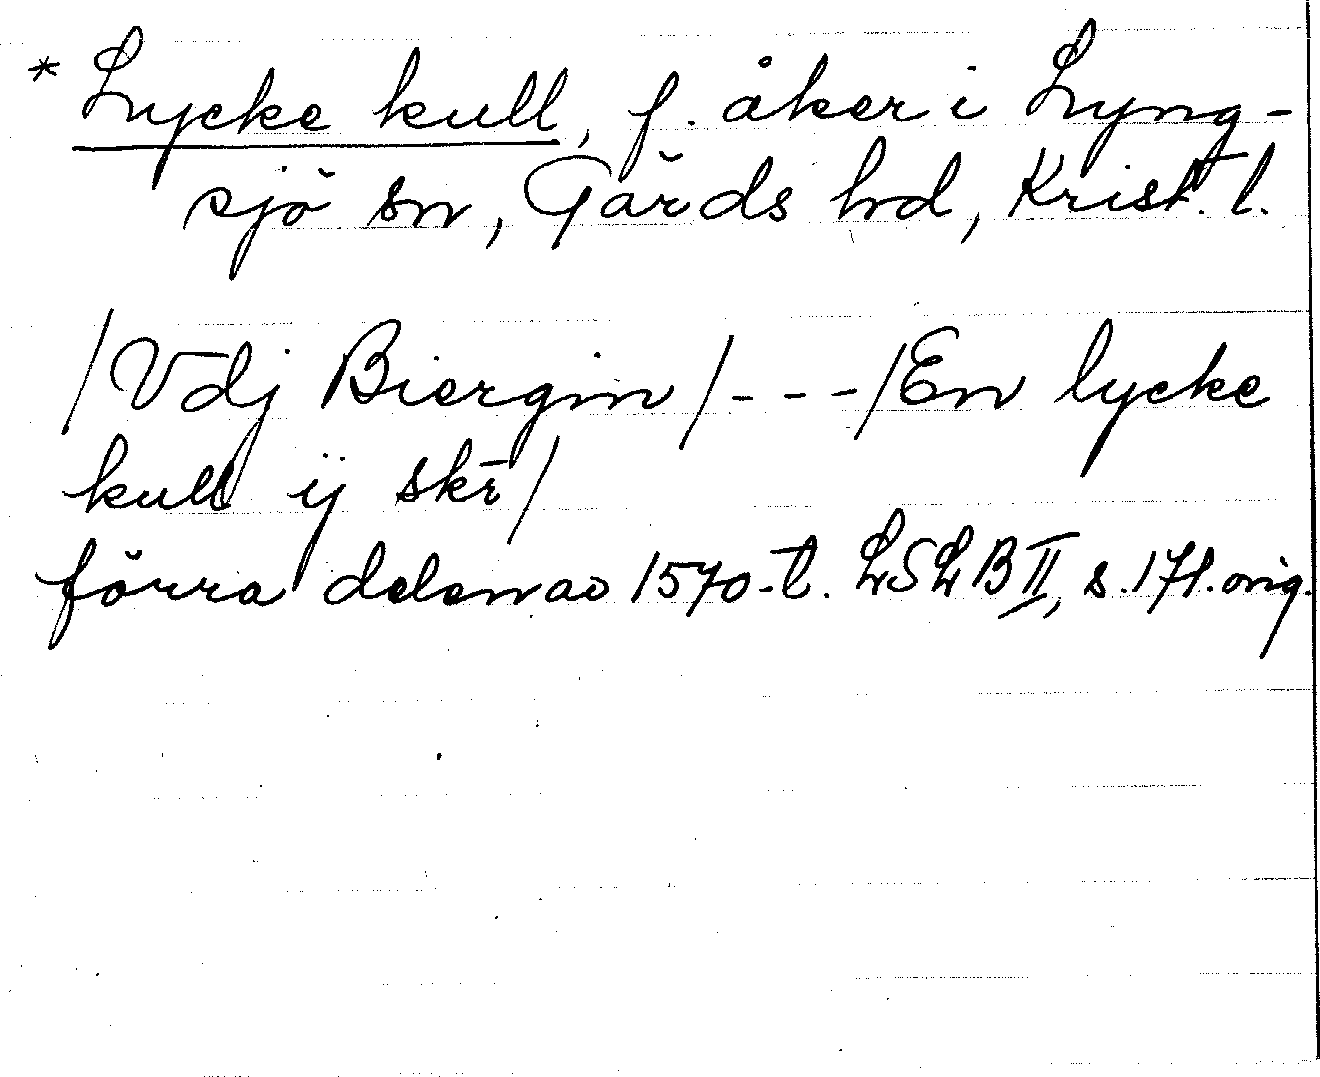 * Lycke kull, f. åker i Lyng-
sjö sn, Gärds hd, Krist. l.
/Vdj Biergin/---/En lycke
kull ij skr̄/
förra delen av 1570-t. LSLB II, s. 171. orig.